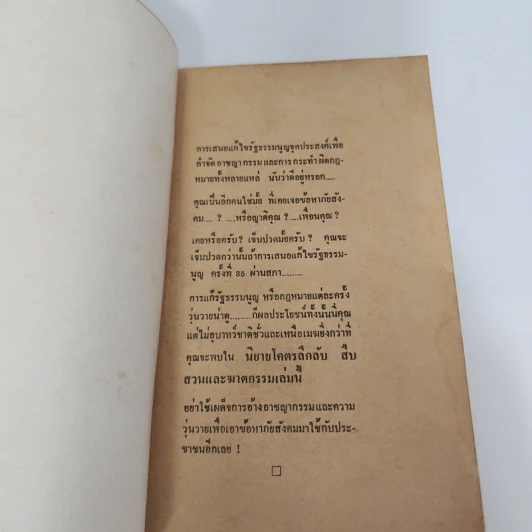 การเสนอแก้ไขรัฐธรรมนูญจุดประสงค์เพื่อ
กำจัดอาชญากรรมและการกระทำผิดกฎ-
หมายทั้งหลายแหล่ นับว่าดีอยู่หรอก....
คุณเป็นอีกคนใช่มั้ย ที่เคยเจอข้อหาภัยสัง-
คม.... ? ....หรือญาติคุณ ? ....เพื่อนคุณ ?
เคยหรือครับ? เจ็บปวดมั้ยครับ? คุณจะ
เจ็บปวดกว่านั้นถ้าการเสนอแก้ไขรัฐธรรม-
นูญ ครั้งที่ 35 ผ่านสภา........
การแก้รัฐธรรมนูญ หรือกฎหมายแต่ละครั้ง
วุ่นวายน่าดู........ก็ผลประโยชน์ทั้งนั้นนี่คุณ
แต่ไม่อุบาทว์ชาติชั่วและเหนือเมฆยิ่งกว่าที่
คุณจะพบใน นิยายโคตรลึกลับ สืบ
สวนและฆาตกรรมเล่มนี้
อย่าใช้เผด็จการอ้างอาชญากรรมและความ
วุ่นวายเพื่อเอาข้อหาภัยสังคมมาใช้กับประ-
ชาชนอีกเลย !